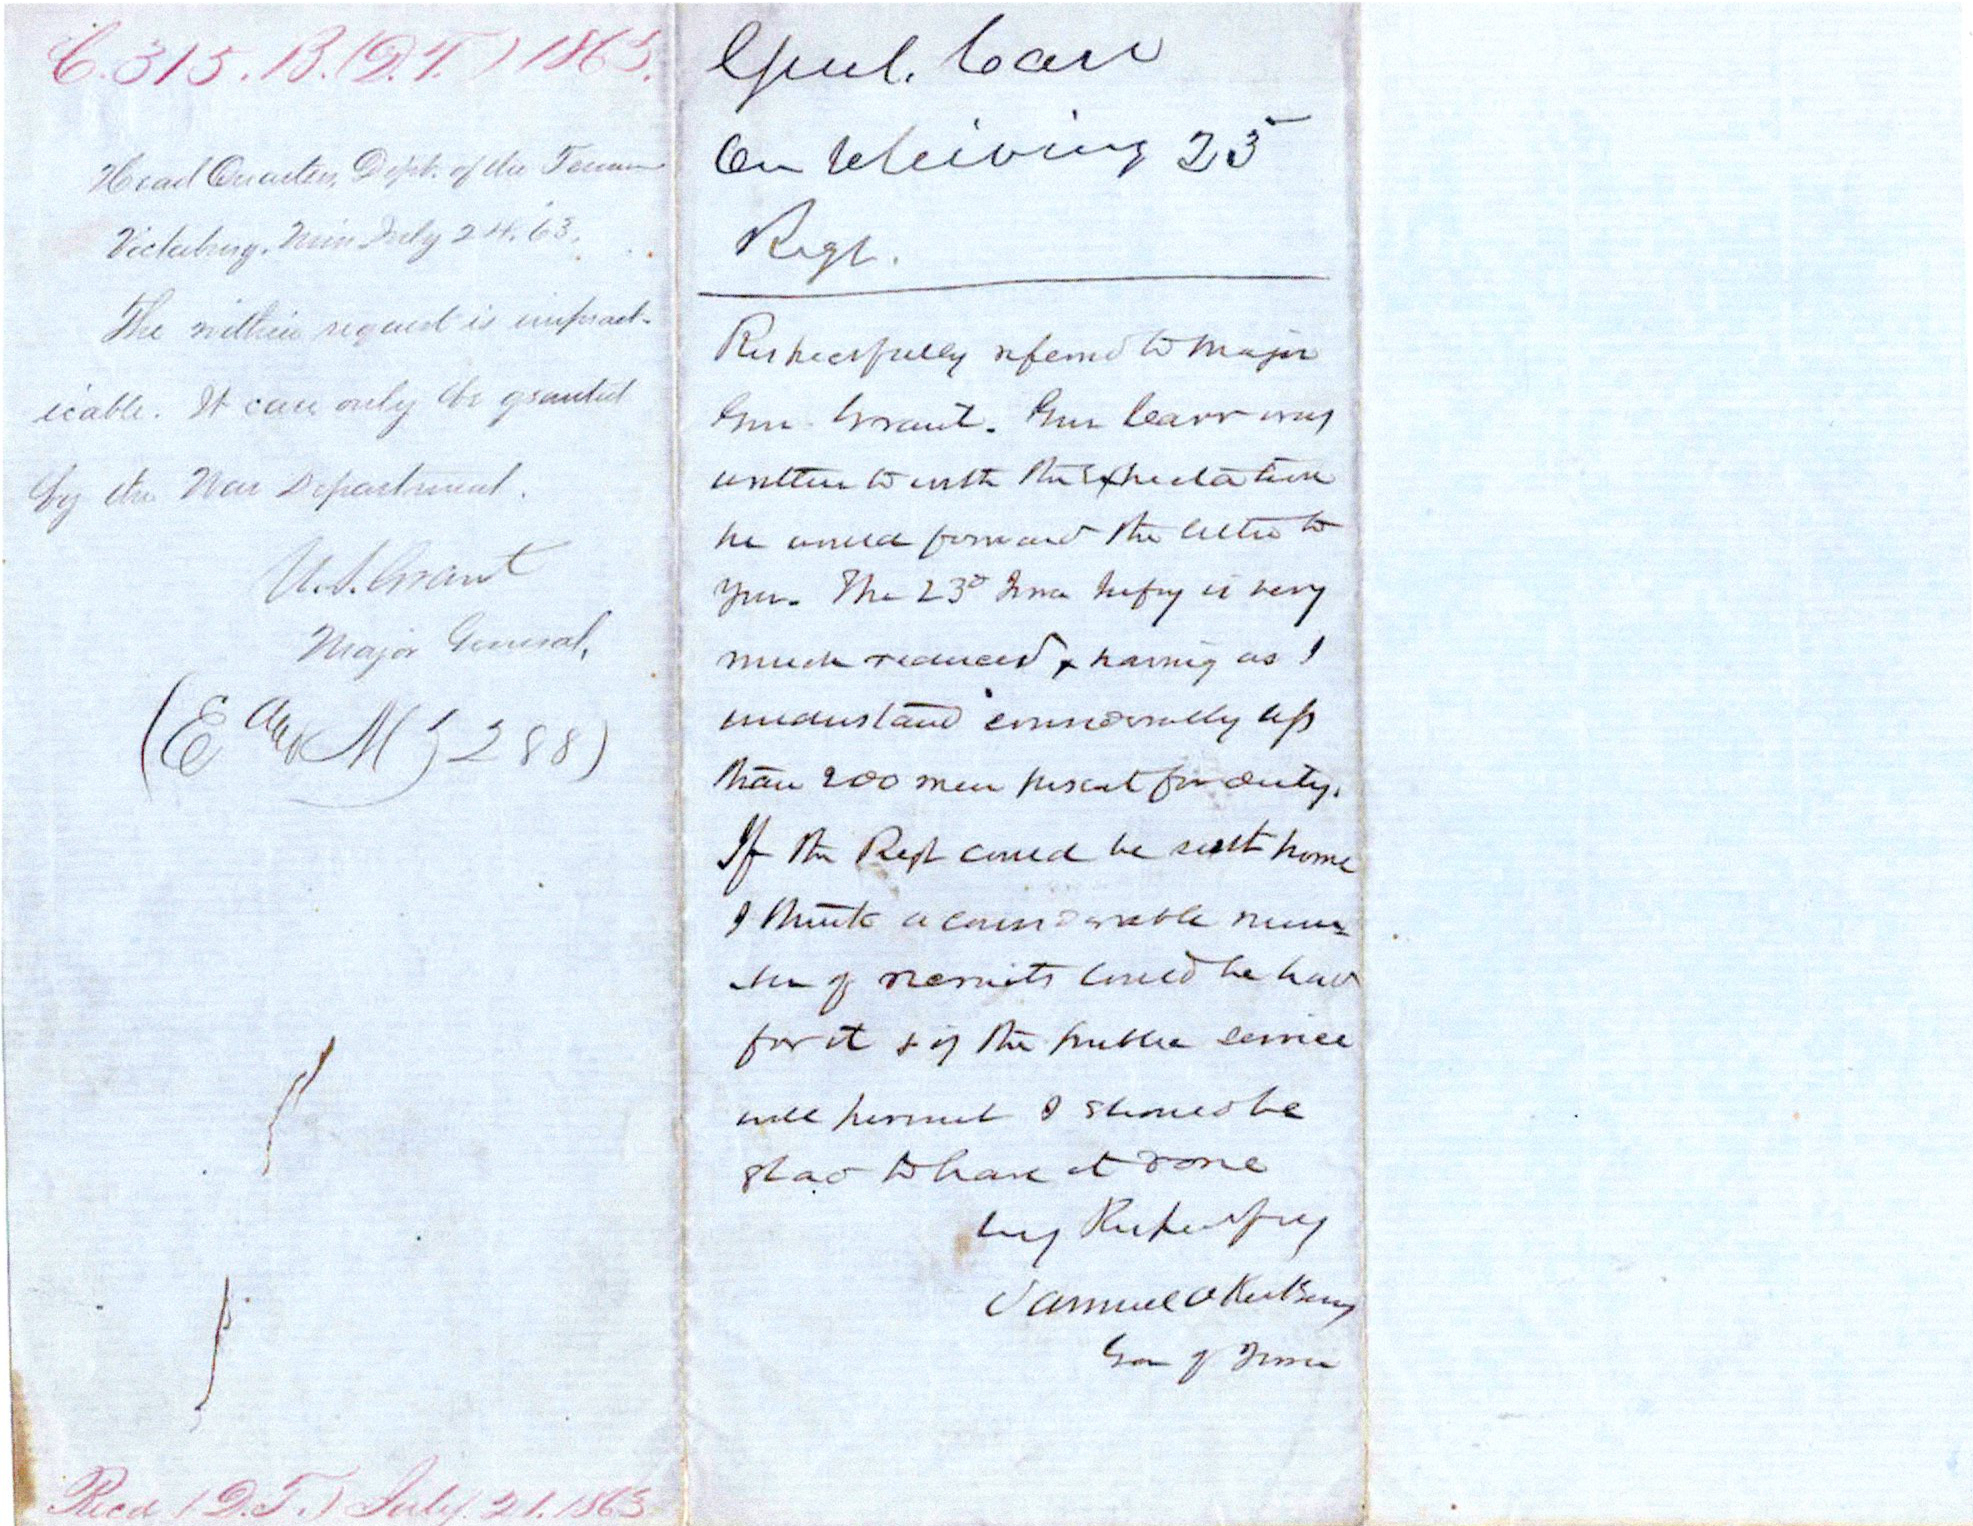 C. 315. B. (D.T.) 1863.
Head Quarters, Dept. of the Tenn
Vicksburg. Miss July 24. 63.
The within request is impract-
icable. It can only be granted
by the War Department.
U.S. Grant
Major General,
288)
Recd (D.T.) July. 21. 1863
Genl. Carr
On recieving 23
Regt.
Respectfully referred to Major
Gen Grant. Gen Carr was
written to with the expectation
he would forward the letter to
you. The 23d Iowa Infty is very
much reduced & having as I
understand considerably less
than 200 men present for duty.
If the Regt could be sent home
I think a considerable num-
ber of recruits could be had
for it & if the public service
will permit I should be
glad to have it done
Very Respectfully
Samuel J Kirkwood
Gov of Iowa